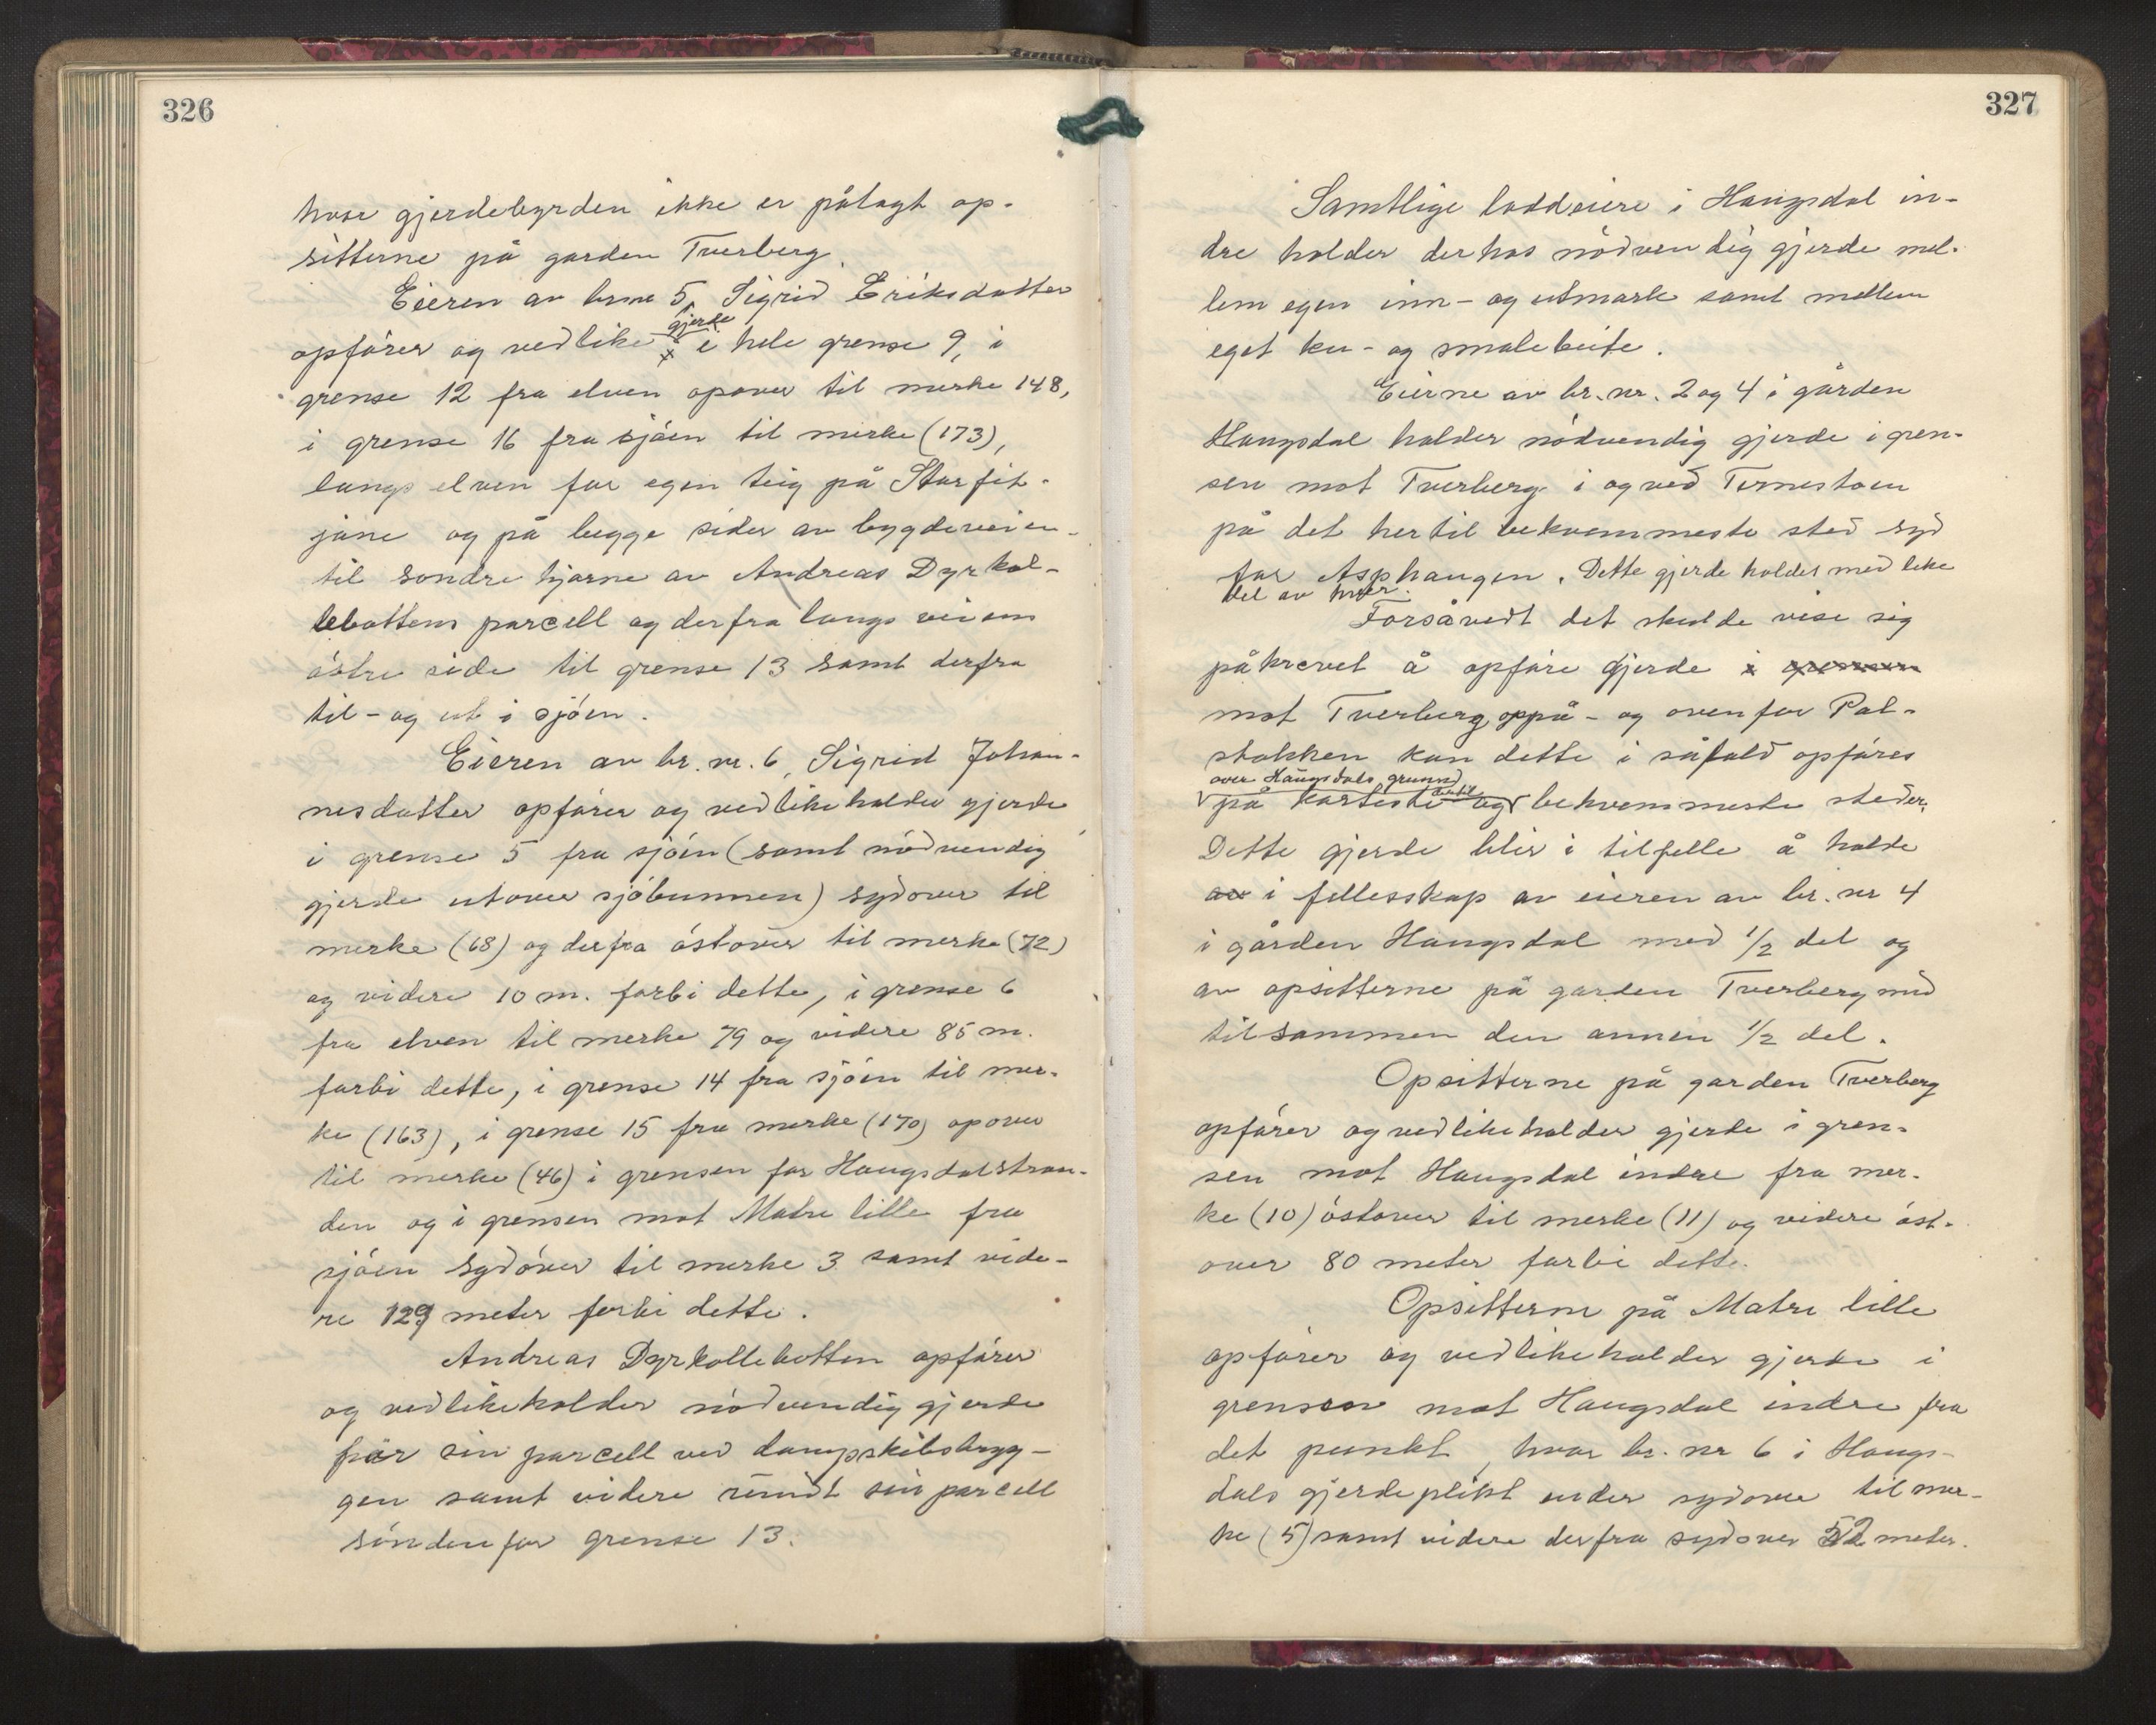 326
hvor gjerdebyrden ikke er pålagt op-
sitterne på garden Tverberg.
Eieren av br.nr 5, Sigrid Eriksdatter
gjerde
opförer og vedlike i hele grense 9, i
grense 12 fra elven opover til merke 148,
i grense 16 fra sjöen til merke (173),
langs elven for egen teig på Storfit-
jane og på begge sider av bygdeveien
til söndre hjørne av Andreas Dyrkol-
lebottens parcell og derfra langs veiens
östre side til grense 13 samt derfra
til- og ut i sjöen.
Eieren av br. nr. 6, Sigrid Johan-
nesdatter opförer og vedlikeholder gjerde
i grense 5 fra sjöen (samt nödvendig
gjerde utover sjöbunnen) sydover til
merke (68) og derfra östover til merke (72)
og videre 10 m. forbi dette, i grense 6
fra elven til merke 79 og videre 85 m.
forbi dette, i grense 14 fra sjöen til mer-
ke (163), i grense 15 fra merke (170) opover
til merke (46) i grensen for Haugsdalstran-
den og i grensen mot Matre lille fra
sjöen sydöver til merke 3 samt vide-
re 129 meter forbi dette.
Andreas Dyrkollebotten opförer
og vedlikeholder nödvendig gjerde
för sin parcell ved dampskibsbryg-
gen samt videre rundt sin parcell
sönden for grense 13.
327
Samtlige loddeiere i Haugsdal in-
dre holder derhos nödvendig gjerde mel-
lem egen inn- og utmark samt mellem
eget ku- og smalebeite.
Eierne av br. nr. 2 og 4 i gården
Haugsdal holder nödvendig gjerde i gren-
sen mot Tverberg i og ved Ternestoen
på det hertil bekvemmeste sted syd
for Asphaugen. Dette gjerde holdes med like
del av hver.
Forsåvedt det skulde vise sig
påkrevet å opföre gjerde i grensen
mot Tverberg oppå- og ovenfor Pal-
stokken kan dette i såfald opföres
over Haugsdals grunn
på korteste og dertil bekvemmeste steder.
Dette gjerde blir i tilfelle å holde
av i fellesskap av eieren av br. nr 4
i gården Haugsdal med 1/2 del og
av opsitterne på garden Tverberg med
tilsammen den annen 1/2 del.
Opsitterne på garden Tverberg
opförer og vedlikeholder gjerde i gren-
sen mot Haugsdal indre fra mer-
ke (10) östover til merke (11) og videre öst-
over 80 meter forbi dette.
Opsitterne på Matre lille
opförer og vedlikeholder gjerde i
grensen mot Haugsdal indre fra
det punkt, hvor br. nr 6 i Haugs-
dals gjerdeplikt ender sydover til mer-
ke (5) samt videre derfra sydover 52 meter.